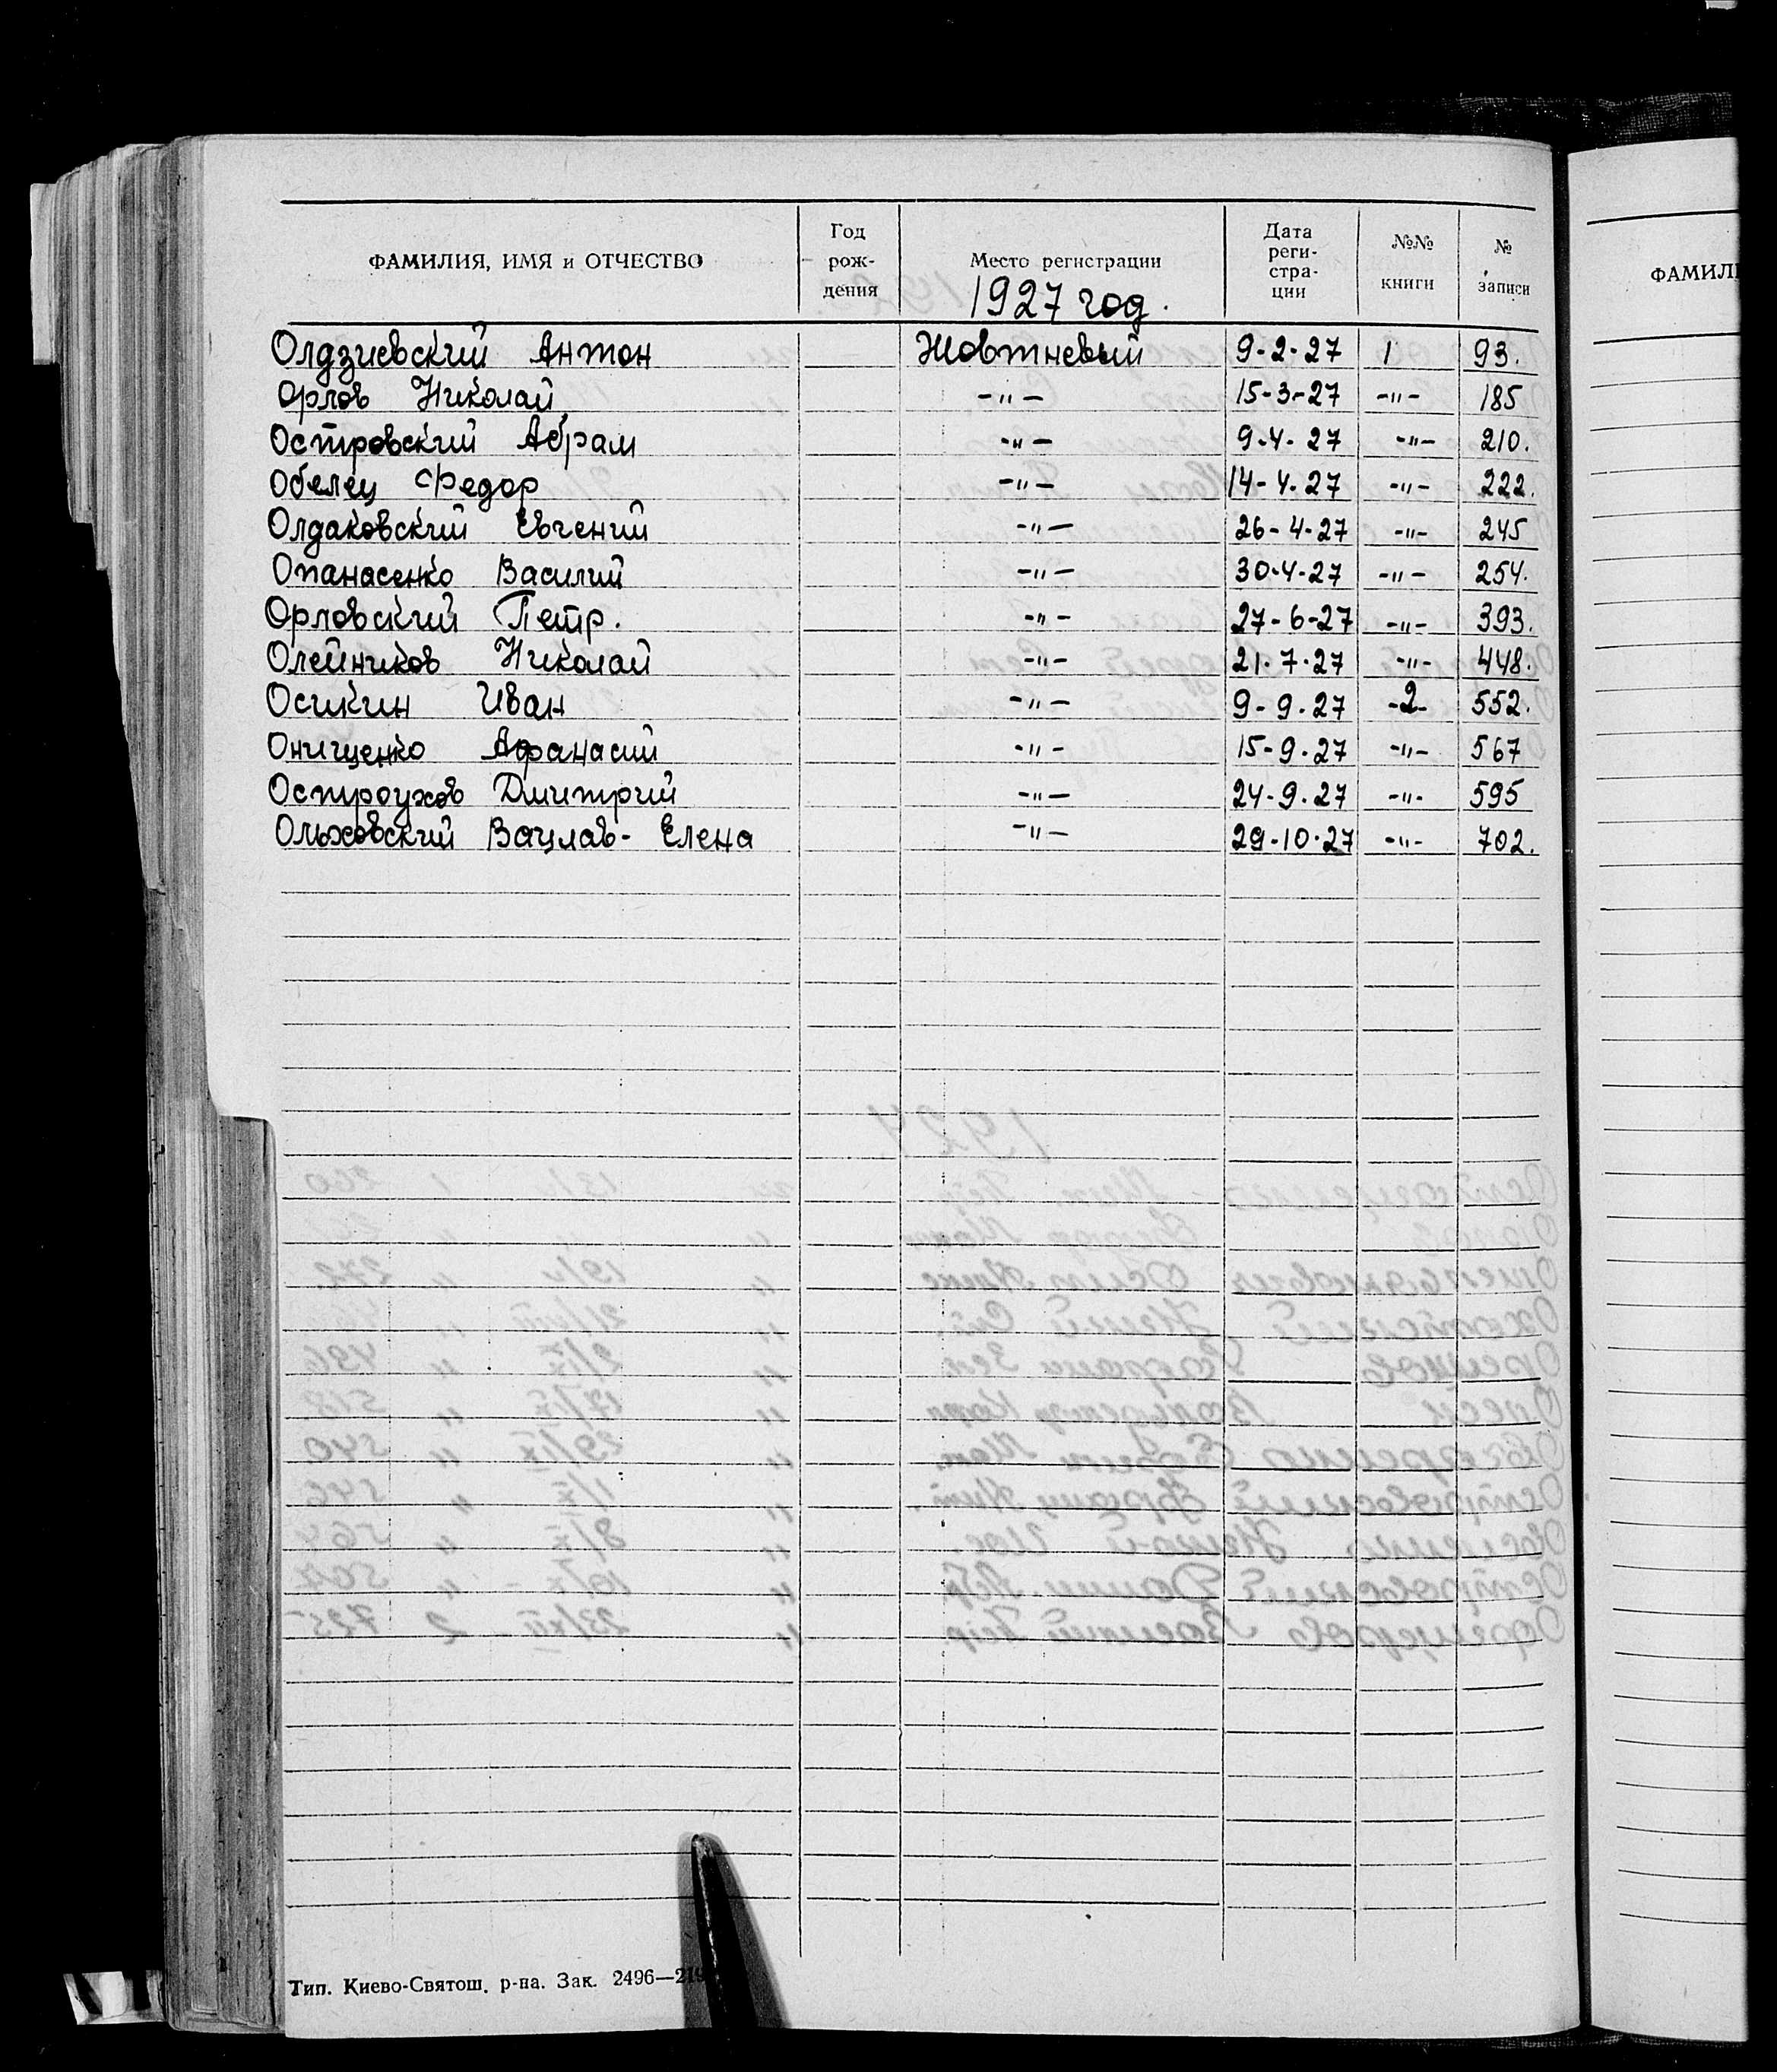 ФАМИЛИЯ, ИМЯ и ОТЧЕСТВО Год рож- дения Место регистрации Дата реги- стра- ции №№ книги № записи
1927 год.
Олдзиевский Антон Жовтневый 9-2-27 1 93.
Орлов Николай -"- 15-3-27 -"- 185
Островский Абрам -"- 9-4-27 -"- 210.
Обелец Федор -"- 14-4-27 -"- 222.
Олдаковский Евгений -"- 26-4-27 -"- 245
Опанасенко Василий -"- 30-4-27 -"- 254.
Орловский Петр. -"- 27-6-27 -"- 393.
Олейников Николай -"- 21.7.27 -"- 448.
Осикин Иван -"- 9-9.27 -2- 552.
Онищенко Афанасий -"- 15-9.27 -"- 567
Остроухов Дмитрий -"- 24-9.27 -"- 595
Ольховский Вацлав- Елена -"- 29-10.27 -"- 702.
Тип. Киево-Святош. р-на. Зак. 2496—219
ФАМИЛИ